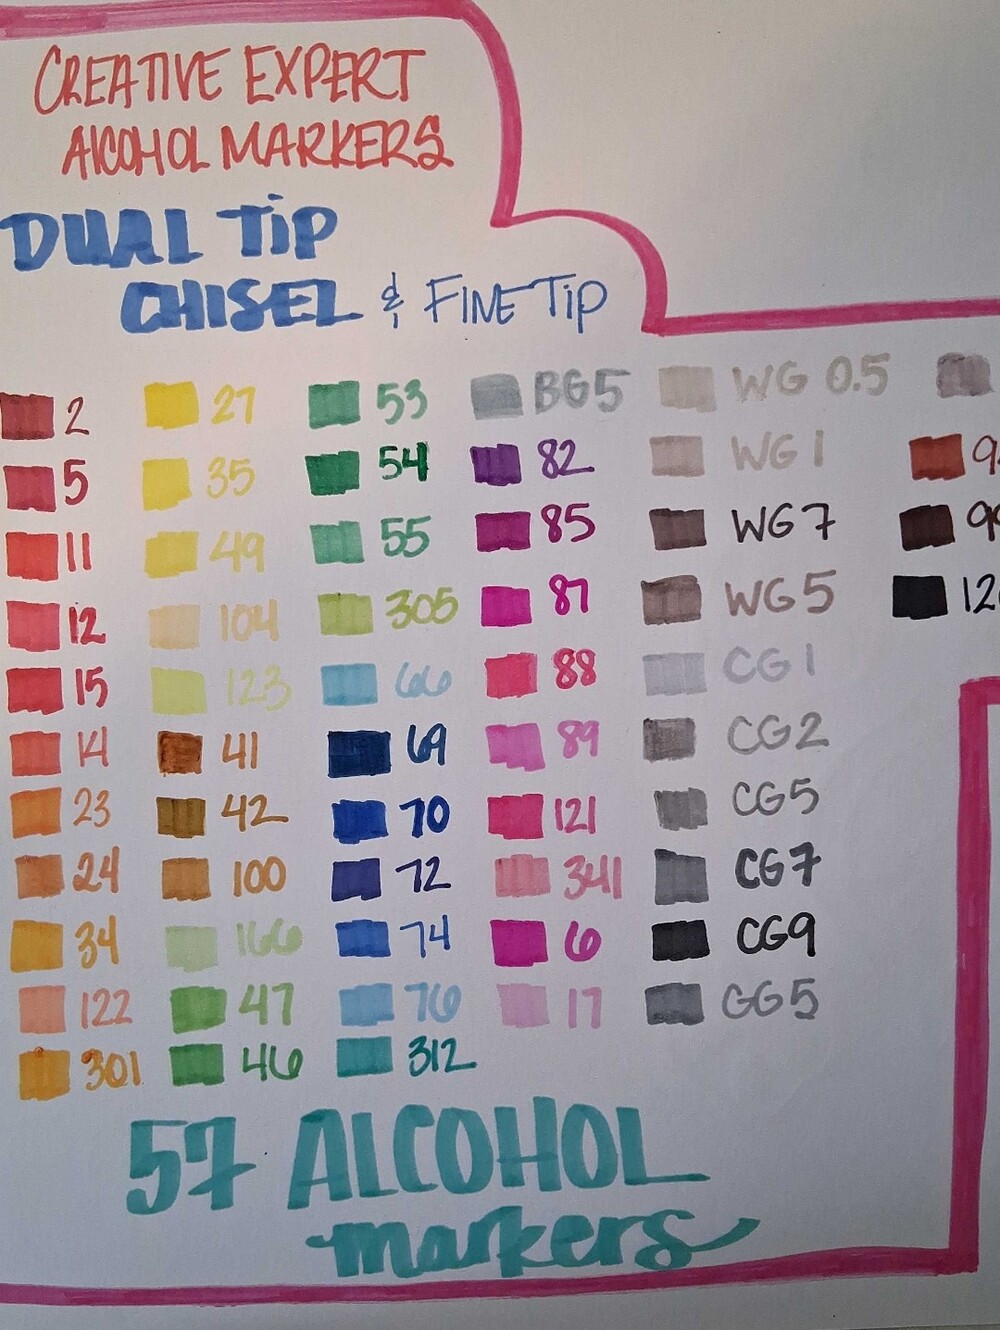 CREATIVE EXPERT
ALCOHOL MARKERS
DUAL TIP
CHISEL & FINE TIP
2 27 53 BG5 WG 0.5
5 35 54 82 WG 1
11 49 55 85 WG 7
12 104 305 87 WG 5
15 123 66 88 CG 1
14 41 69 89 CG2
23 42 70 121 CG5
24 100 72 341 CG7
34 166 74 6 CG9
122 47 76 17 GG5
301 46 312
57 ALCOHOL
markers